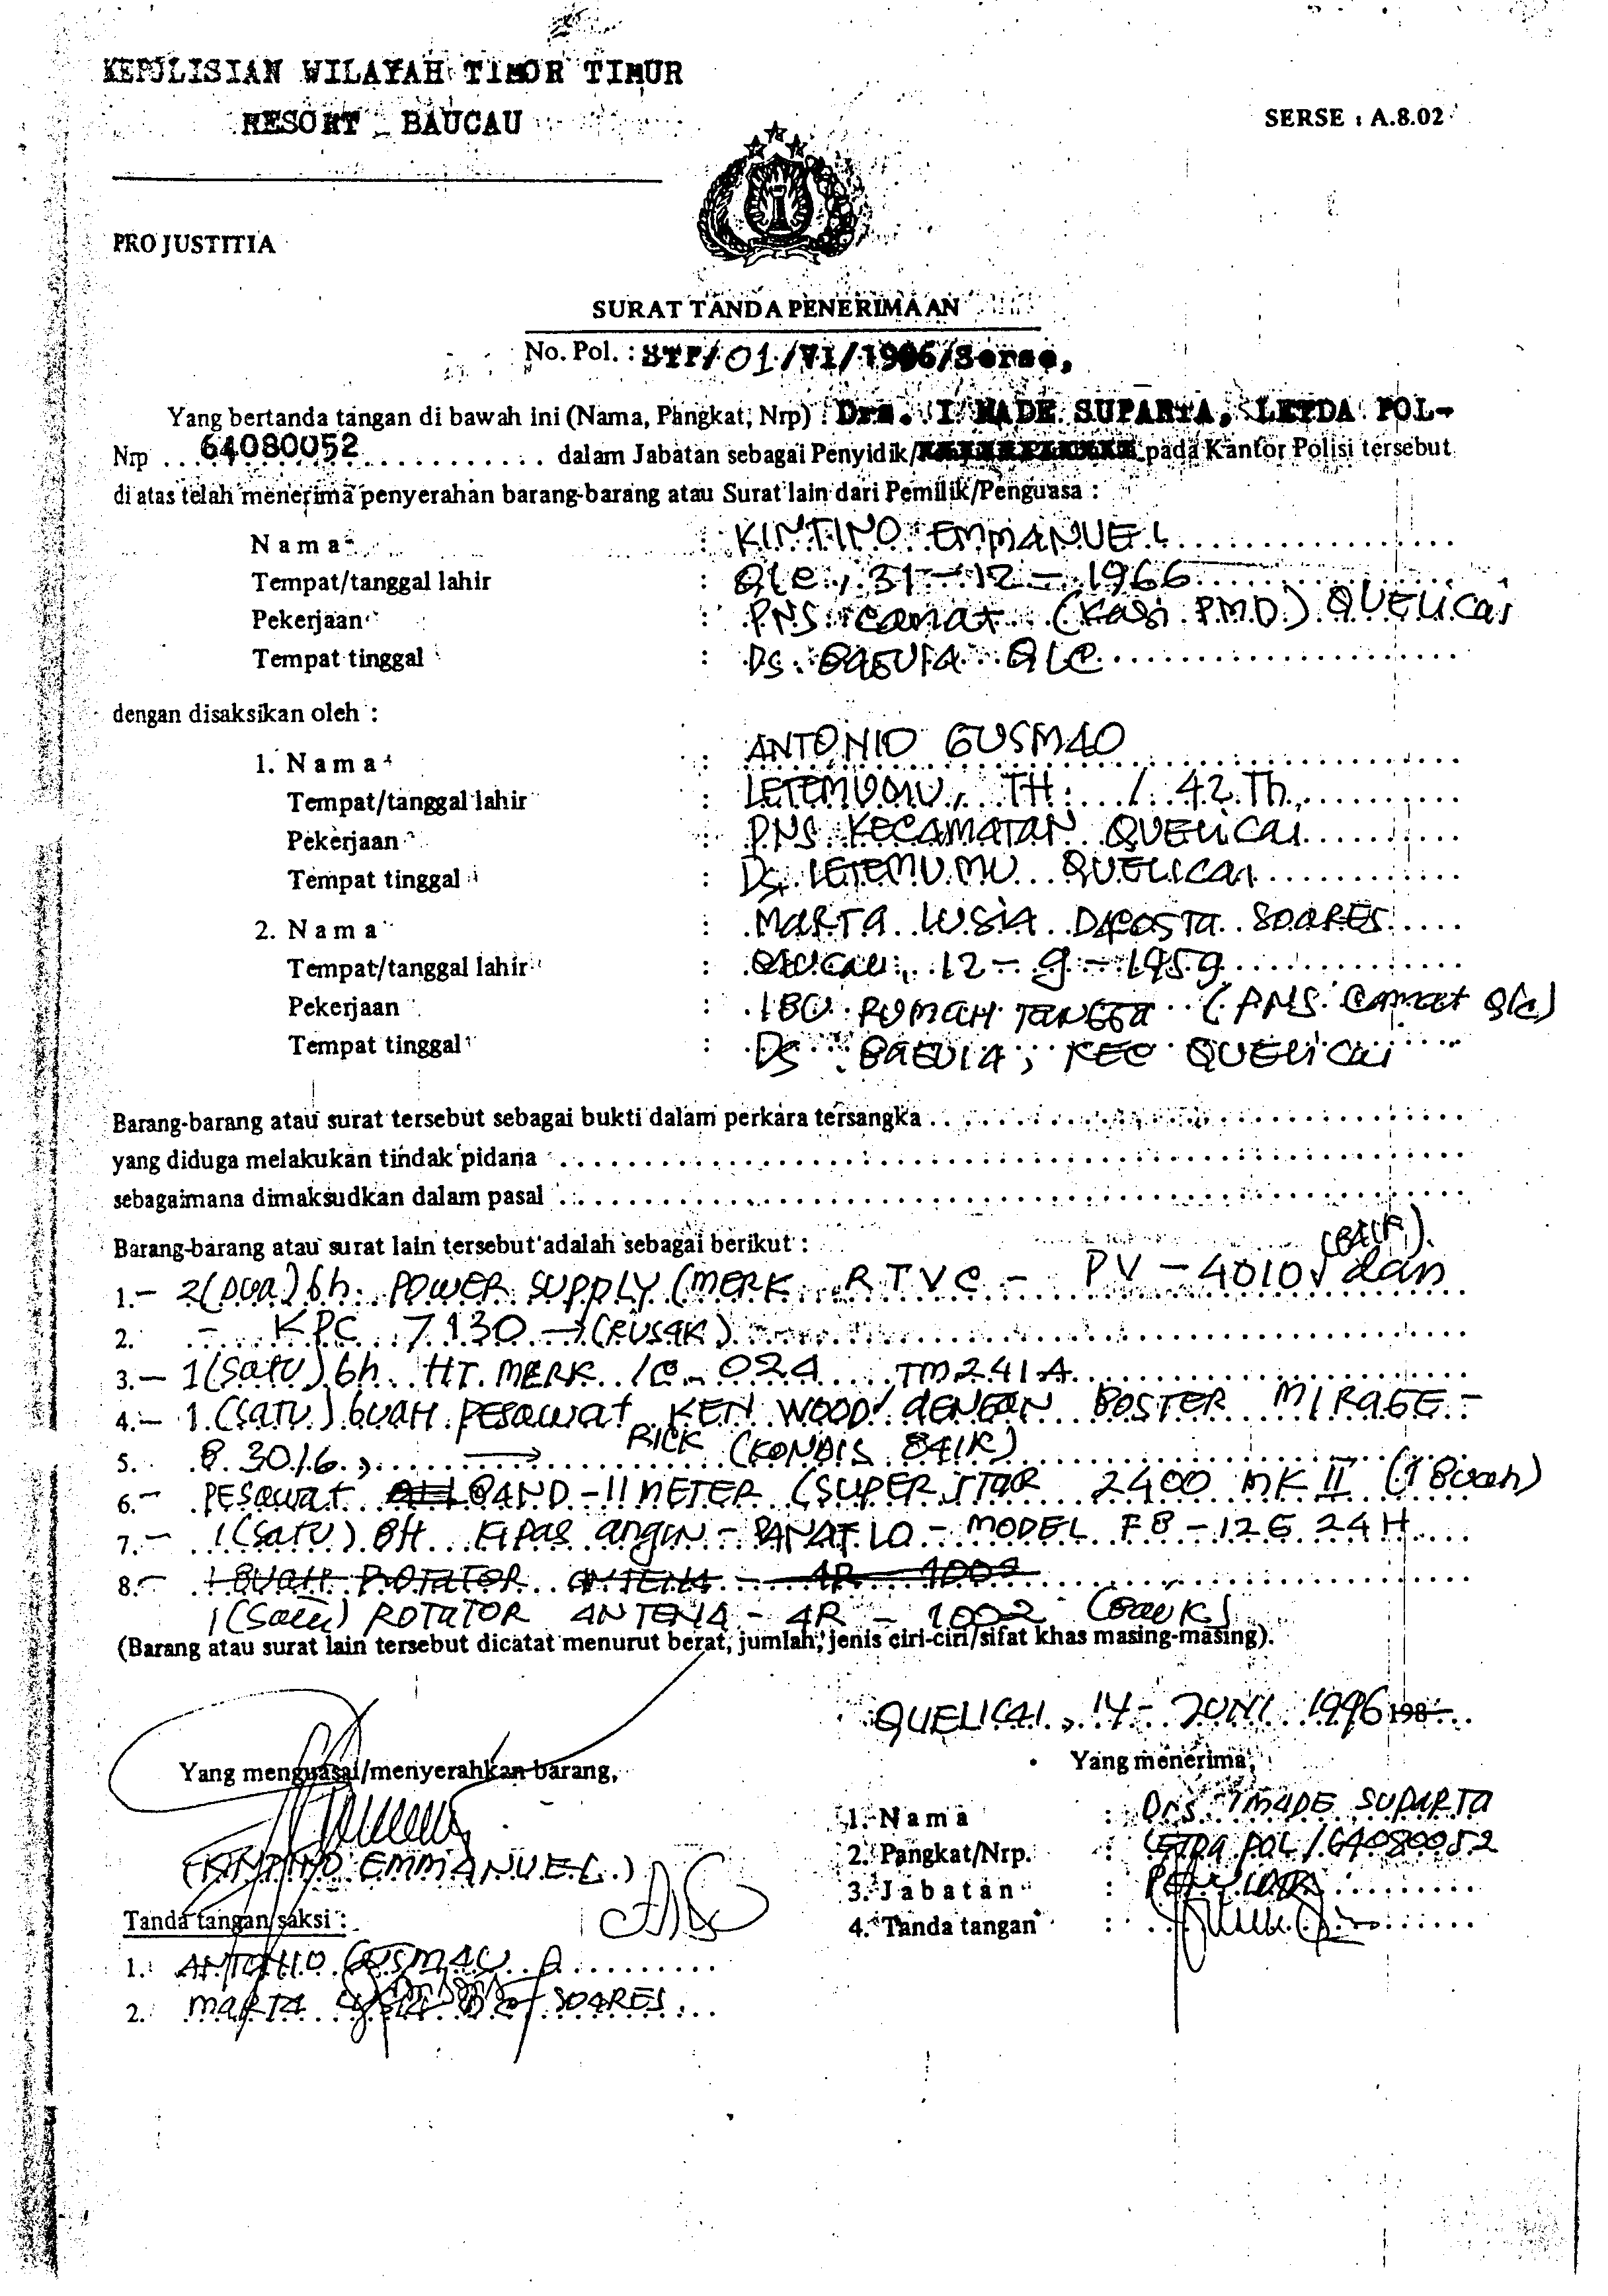 KEPOLISIAN WILAYAH TIMOR TIMUR
RESORT BAUCAU
SERSE : A.8.02
PRO JUSTITIA
SURAT TANDA PENERIMAAN
No. Pol. : STP/01/VI/1996/Serse,
Yang bertanda tangan di bawah ini (Nama, Pangkat, Nrp) : Drs. I MADE SUPARTA, LETDA POL-
Nrp ... 64080052 ............ dalam Jabatan sebagai Penyidik/ pada Kantor Polisi tersebut
di atas telah menerima penyerahan barang-barang atau Surat lain dari Pemilik/Penguasa :
Nama : KINTINO EMMANUEL
Tempat/tanggal lahir : Qlc, 31 - 12 - 1966
Pekerjaan : PNS camat (Kasi PMD) QUELICai
Tempat tinggal : Ds. BAGUIA QLC
dengan disaksikan oleh :
1. Nama : ANTONIO GUSMAO
Tempat/tanggal lahir : LETEMUMU, TH. / 42 Th,
Pekerjaan : PNS KECAMATAN QUELICAI
Tempat tinggal : Ds. LETEMUMU QUELICAI
2. Nama : MARTA LUSIA DACOSTA SOARES
Tempat/tanggal lahir : BAUCAU, 12 - 9 - 1959
Pekerjaan : IBU RUMAH TANGGA (PNS Camat Qlc)
Tempat tinggal : Ds. BAGUIA, KEC QUELICAI
Barang-barang atau surat tersebut sebagai bukti dalam perkara tersangka
yang diduga melakukan tindak pidana
sebagaimana dimaksudkan dalam pasal
Barang-barang atau surat lain tersebut adalah sebagai berikut :
(BAIK).
1.- 2 (DUA) bh. POWER SUPPLY (MERK RTVC - PV - 4010 √ dan
2. - KPC 7130 → (RUSAK)
3.- 1 (SATU) bh HT. MERK IC - 02A TM241A
4.- 1 (SATU) BUAH PESAWAT KENWOOD DENGAN BOSTER MIRAGE -
5. B.3016, → RICK (KONDIS BAIK)
6.- PESAWAT BAND - 11 METER (SUPER STAR 2400 MK II (1 Buah)
7.- 1 (SATU) BH KIPAS ANGIN - PANAFLO - MODEL FB - 12G 24H
8.- 1 BUAH ROTATOR ANTENA - AR 1002
1 (Satu) ROTATOR ANTENA - AR - 1002 (Baik)
(Barang atau surat lain tersebut dicatat menurut berat, jumlah, jenis ciri-ciri/sifat khas masing-masing).
QUELICAI, 14 - JUNI 1996 198
Yang menguasai/menyerahkan barang,
Yang menerima,
1. Nama : Drs. I MADE SUPARTA
2. Pangkat/Nrp. : LETDA POL / 64080052
(KINTINO EMMANUEL)
3. Jabatan : PENYIDIK
Tanda tangan saksi :
4. Tanda tangan :
1. ANTONIO GUSMAO
2. MARTA LUSIA SOARES